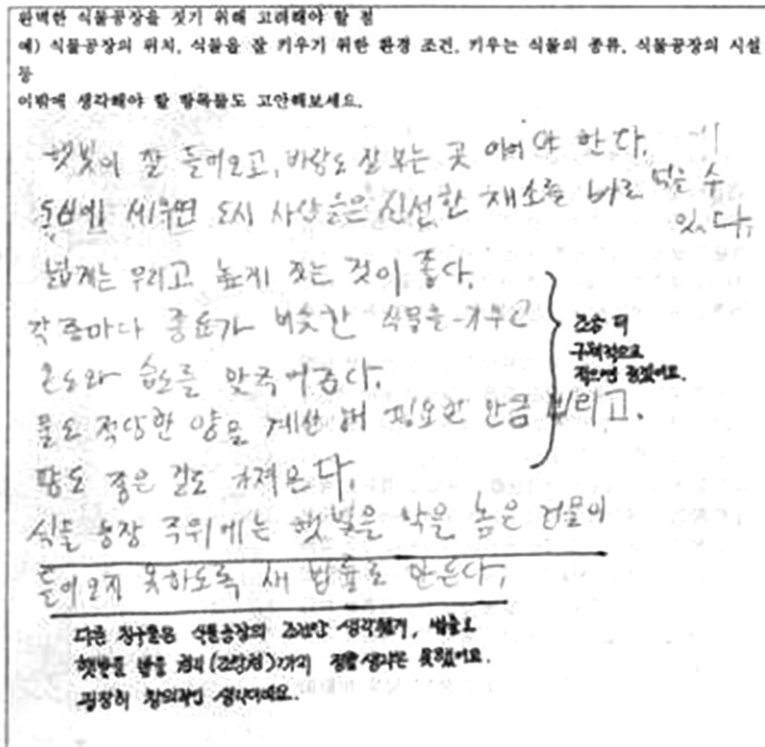 완벽한 식물공장을 짓기 위해 고려해야 할 점
예) 식물공장의 위치, 식물을 잘 키우기 위한 환경 조건, 키우는 식물의 종류, 식물공장의 시설
등
이밖에 생각해야 할 항목들도 고안해보세요.
햇빛이 잘 들어오고, 바람도 잘 부는 곳 이어야 한다.
도심에 세우면 도시 사람들은 신선한 채소를 바로 먹을 수
있다.
넓게는 우리고 높게 짓는 것이 좋다.
각 층마다 종류가 비슷한 식물을 키우고
온도와 습도를 맞추어준다.
물도 적당한 양을 계산해 필요한 만큼 뿌리고.
땅도 좋은 걸로 가져온다.
조금 더
구체적으로
적으면 좋겠어요.
식물 농장 주위에는 햇빛을 막을 높은 건물이
들어오지 못하도록 새 법률로 만든다.
다른 친구들은 식물공장의 조건만 생각했지, 법률로
햇빛을 받을 권리(조망권)까지 정할 생각은 못했어요.
굉장히 창의적인 생각이에요.